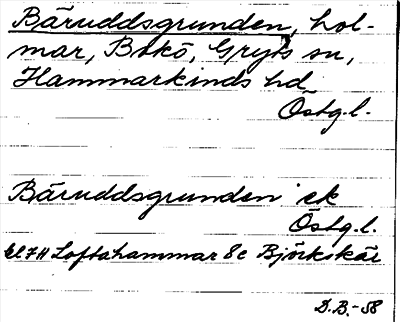 Bäruddsgrunden, hol-
mar, Bokö, Gryts sn,
Hammarkinds hd
Östg.l.
Bäruddsgrunden ek
Östg.l.
Loftahammar 8c Björkskär
D.B.-58